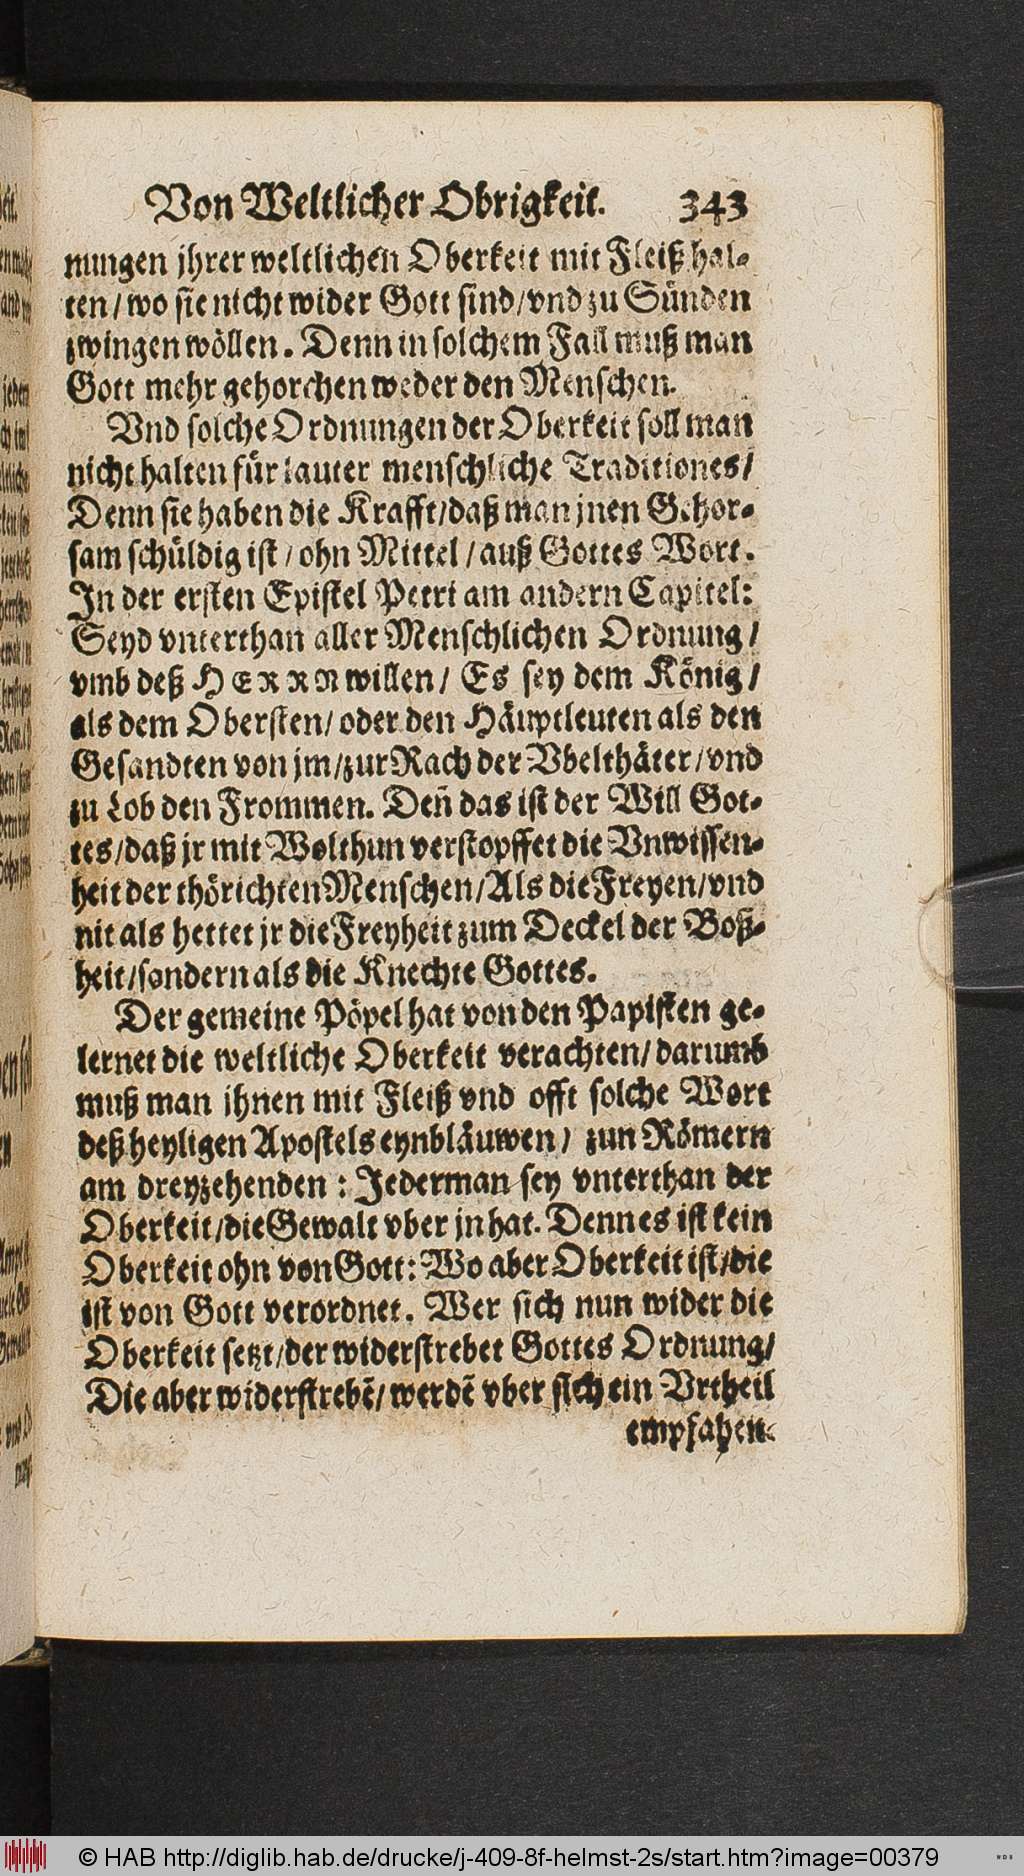 Von Weltlicher Obrigkeit. 343
nungen jhrer weltlichen Oberkeit mit Fleiß hal-
ten / wo sie nicht wider Gott sind / vnd zu Sünden
zwingen wöllen. Denn in solchem Fall muß man
Gott mehr gehorchen weder den Menschen.
Vnd solche Ordnungen der Oberkeit soll man
nicht halten für lauter menschliche Traditiones /
Denn sie haben die Krafft / daß man jnen Gehor-
sam schüldig ist / ohn Mittel / auß Gottes Wort.
In der ersten Epistel Petri am andern Capitel:
Seyd vnterthan aller Menschlichen Ordnung /
vmb deß HERRN willen / Es sey dem König /
als dem Obersten / oder den Häuptleuten als den
Gesandten von jm / zur Rach der Vbelthäter / vnd
zu Lob den Frommen. Deñ das ist der Will Got-
tes / daß jr mit Wolthun verstopffet die Vnwissen-
heit der thörichten Menschen / Als die Freyen / vnd
nit als hettet jr die Freyheit zum Deckel der Boß-
heit / sondern als die Knechte Gottes.
Der gemeine Pöpel hat von den Papisten ge-
lernet die weltliche Oberkeit verachten / darumb
muß man ihnen mit Fleiß vnd offt solche Wort
deß heyligen Apostels eynbläuwen / zun Römern
am dreyzehenden : Jederman sey vnterthan der
Oberkeit / die Gewalt vber jn hat. Denn es ist kein
Oberkeit ohn von Gott: Wo aber Oberkeit ist / die
ist von Gott verordnet. Wer sich nun wider die
Oberkeit setzt / der widerstrebet Gottes Ordnung /
Die aber widerstrebẽ / werdẽ vber sich ein Vrtheil
empfahen.
© HAB http://diglib.hab.de/drucke/j-409-8f-helmst-2s/start.htm?image=00379